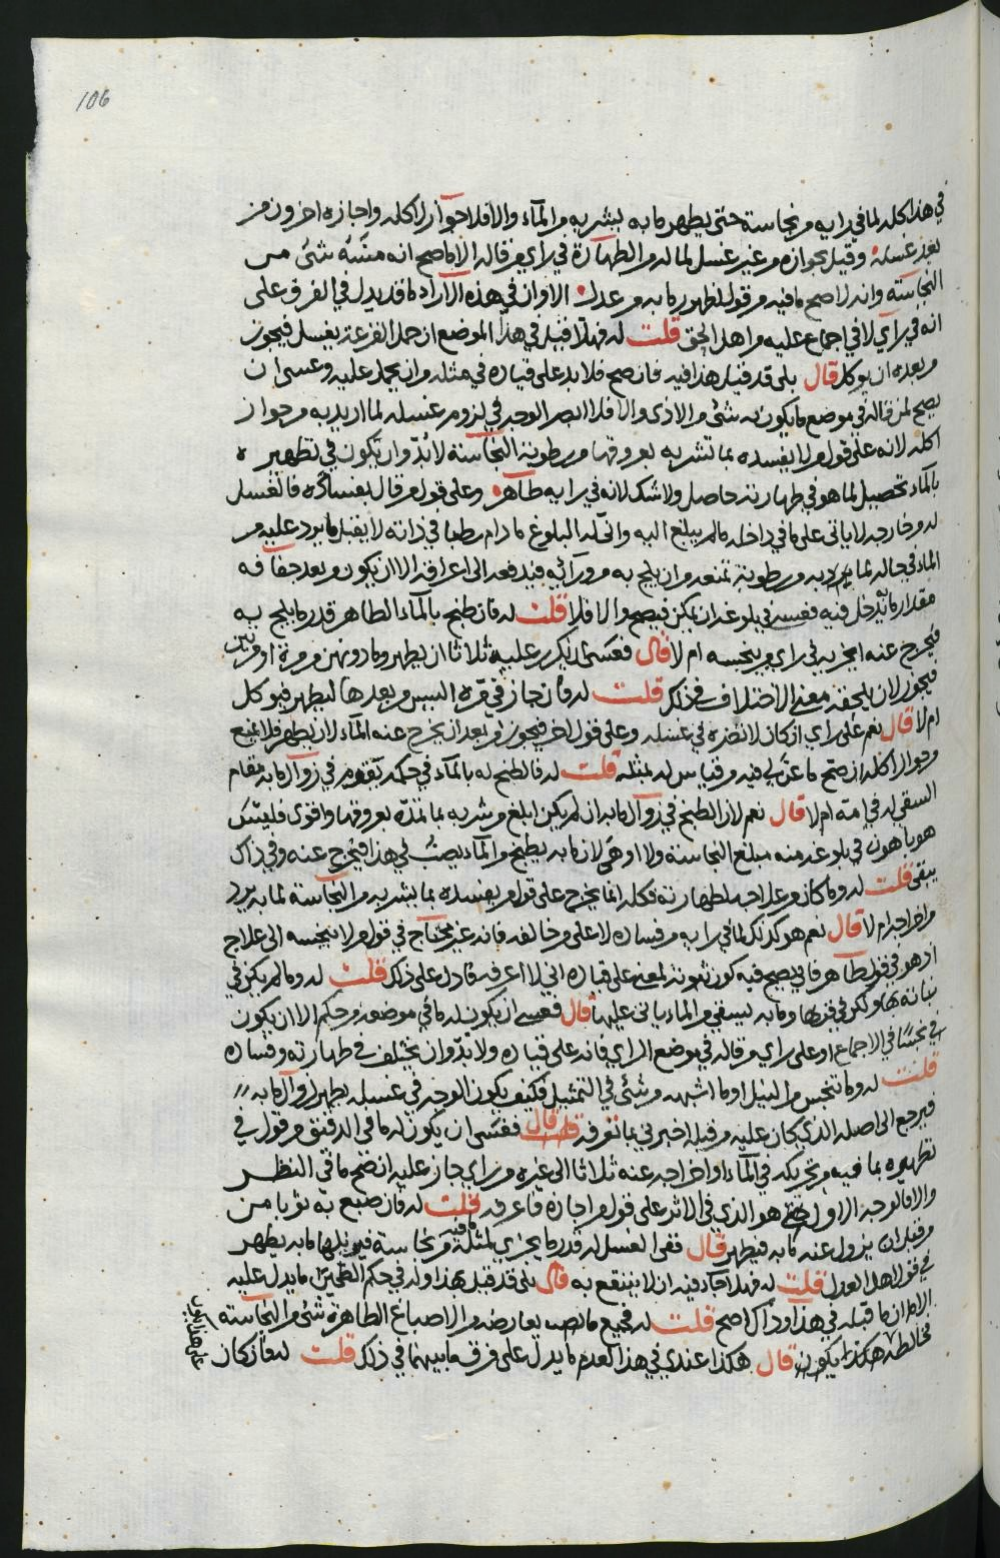 106
في هذا كله لما في رايه من نجاسته حتى يطهر ما به بشربه من الماء والا فلا جواز لاكله واجازه اخرون من
بعد غسله وقيل بجوازه من غير غسل لما له من الطهارة في رأي من قاله الا ما صح انه مسه شئ من
النجاسة وانه لاصح ما فيه من قول لظهور ما به من عدل الا وان في هذه الآراء ما قد يدل في الفرق على
انه في رأي لا في اجماع عليه من اهل الحق قلت له فهلا قيل في هذا الموضع ان حمل القرعة يغسل فيجوز
من بعده ان يوكل قال بلى قد قيل هذا فيه فان صح فلا بد على قياده في مثله من ان يحمل عليه وعسى ان
يصح لمن قاله في موضع ما يكون به شئ من الاذى والا فلا ابصر الوجه في لزوم غسله لما اريد به من جواز
اكله لانه على قول من لا يفسده بما تشربه بعروقها من رطوبة النجاسة لا بد وان تكون في تطهيره
بالماء تحصيل لما هو في طهارته حاصل ولا شك لانه في رايه طاهر وعلى قول من قال بفساده فالغسل
له من خارجه لا ياتي على ما في داخله ما لم يبلغ اليه وانى له البلوغ ما دام رطبا في ذاته لا يقبل ما يرد عليه من
الماء في حاله لما به من رطوبة تمنعه من ان يلج به من ورائه فيدفعه الى اعرافه الا ان يكون من بعد جفافه
مقدار ما يدخل فيه فعسى في بلوغه ان يمكن فيصح والا فلا قلت له فان طبخ بالماء الطاهر قدر ما يلج به
فيخرج عنه ايجزيه في راي من ينجسه ام لا قال فعسى ان يكرر عليه ثلاثا ان يطهر وما دونهن من مرة او مرتين
فيجوز لان يلحقه معنى الاختلاف في ذلك قلت له فان جاز في قره اليبس من بعدها ليطهر فيوكل
ام لا قال نعم على راي ان كان لا نضره في غسله وعلى قول اخر فيجوز من بعد ان يخرج عنه الماء لان يطهر فلا يمنع
من جواز اكله ان صح ما عن لي فيه من قياس له بمثله قلت له فالطبخ له بالماء في حكمه يقوم في زوال ما به مقام
السقي له في امته ام لا قال نعم لان الطبخ في زوال ما به ان لم يكن ابلغ من شربه بما تمده بعروقها واقوى فليس
هو باهون في بلوغه منه مبلغ النجاسة ولا اوهى لان ما به يطبخ من الماء يصب في هذا فيخرج عنه وفي ذاك
يبقى قلت له وما كان من علاجه لطهارته فكله انما يخرج على قول من يفسده بما يشربه من النجاسة لما به يرد
من اخراجه ام لا قال نعم هو كذلك لما في رايه من فساده لا على من خالفه فانه غير محتاج في قول من لا ينجسه الى علاج
اذ هو في قوله طاهر فاني يصح فيه كون ثبوته لمعنى على قياده اني لا اعرفه فادل على ذلك قلت له وما لم يكن في
نباته بها ولكن في قربها وما به يسقى من الماء ياتي عليها قال فعسى ان يكون له ما في موضعه من حكم الا ان يكون
في نجسا في الاجماع او على راي من قاله في موضع الراي فانه على قياده ولا بد وان يختلف في طهارته وفساده
قلت له وما تنجس من النيل او ما اشبهه من شئ في التمثيل فكيف يكون الوجه في غسله يطهر لزوال ما به
فيرجع الى اصله الذي كان عليه من قبله اخبرني بما تعرفه قال فعسى ان يكون له ما في الدقيق من قول في
تطهيره بما فيه من تحريكه في الماء واخراجه عنه ثلاثا الى غيره من راي جاز عليه ان صح ما في النظر
والا فالوجه الاول هو الذي في الاثر على قول من اجازه فاعرفه قلت له فان صبغ به ثوبا من
من قبل ان يزول عنه ما به فيطهر قال ففي الغسل له قدر ما يجزي لمثله ما فيه من نجاسة فيزيلها ما به يطهر
في قول اهل العدل قلت له فهل فيه ان لا ينتفع به قال بلى قد قيل بهذا وله في حكم التطهير ما يدل عليه
الا ان ما قبله في هذا وذاك اصح قلت له فجميع ما يعارضه من الاصباغ الطاهرة شئ من النجاسة
مخالطة هكذا يكون قال هكذا عندي في هذا لعدم ما يدل على فرق ما بينهما في ذلك قلت له فان كان